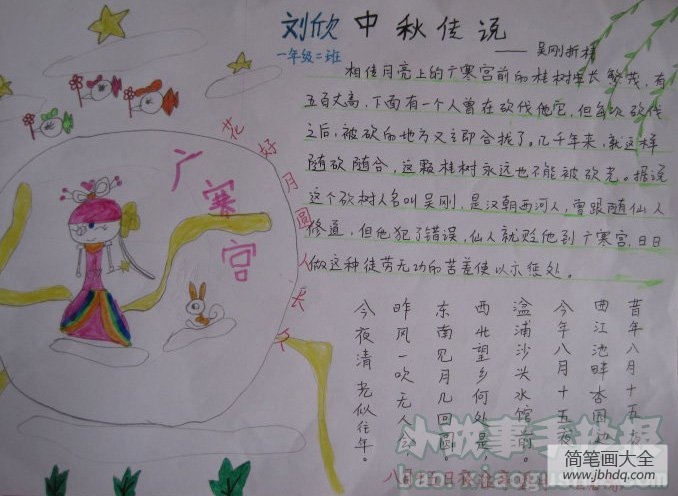 刘欣 中秋传说
一年级二班
——吴刚折桂
相传月亮上的广寒宫前的桂树生长繁茂,有
五百丈高,下面有一个人曾在砍伐他它,但每次砍伐
之后,被砍的地方又立即合拢了。几千年来,就这样
随砍随合,这颗桂树永远也不能被砍光。据说
这个砍树人名叫吴刚,是汉朝西河人,曾跟随仙人
修道,但他犯了错误,仙人就贬他到广寒宫,日日
做这种徒劳无功的苦差使以示惩处。
花好月圆人长久
广寒宫
昔年八月十五夜
曲江池畔杏园边
今年八月十五夜
湓浦沙头水馆前。
西北望乡何处是
东南见月几回圆。
昨风一吹无人会
今夜清光似往年。
小故事手抄报
简笔画大全
www.jbhdq.com